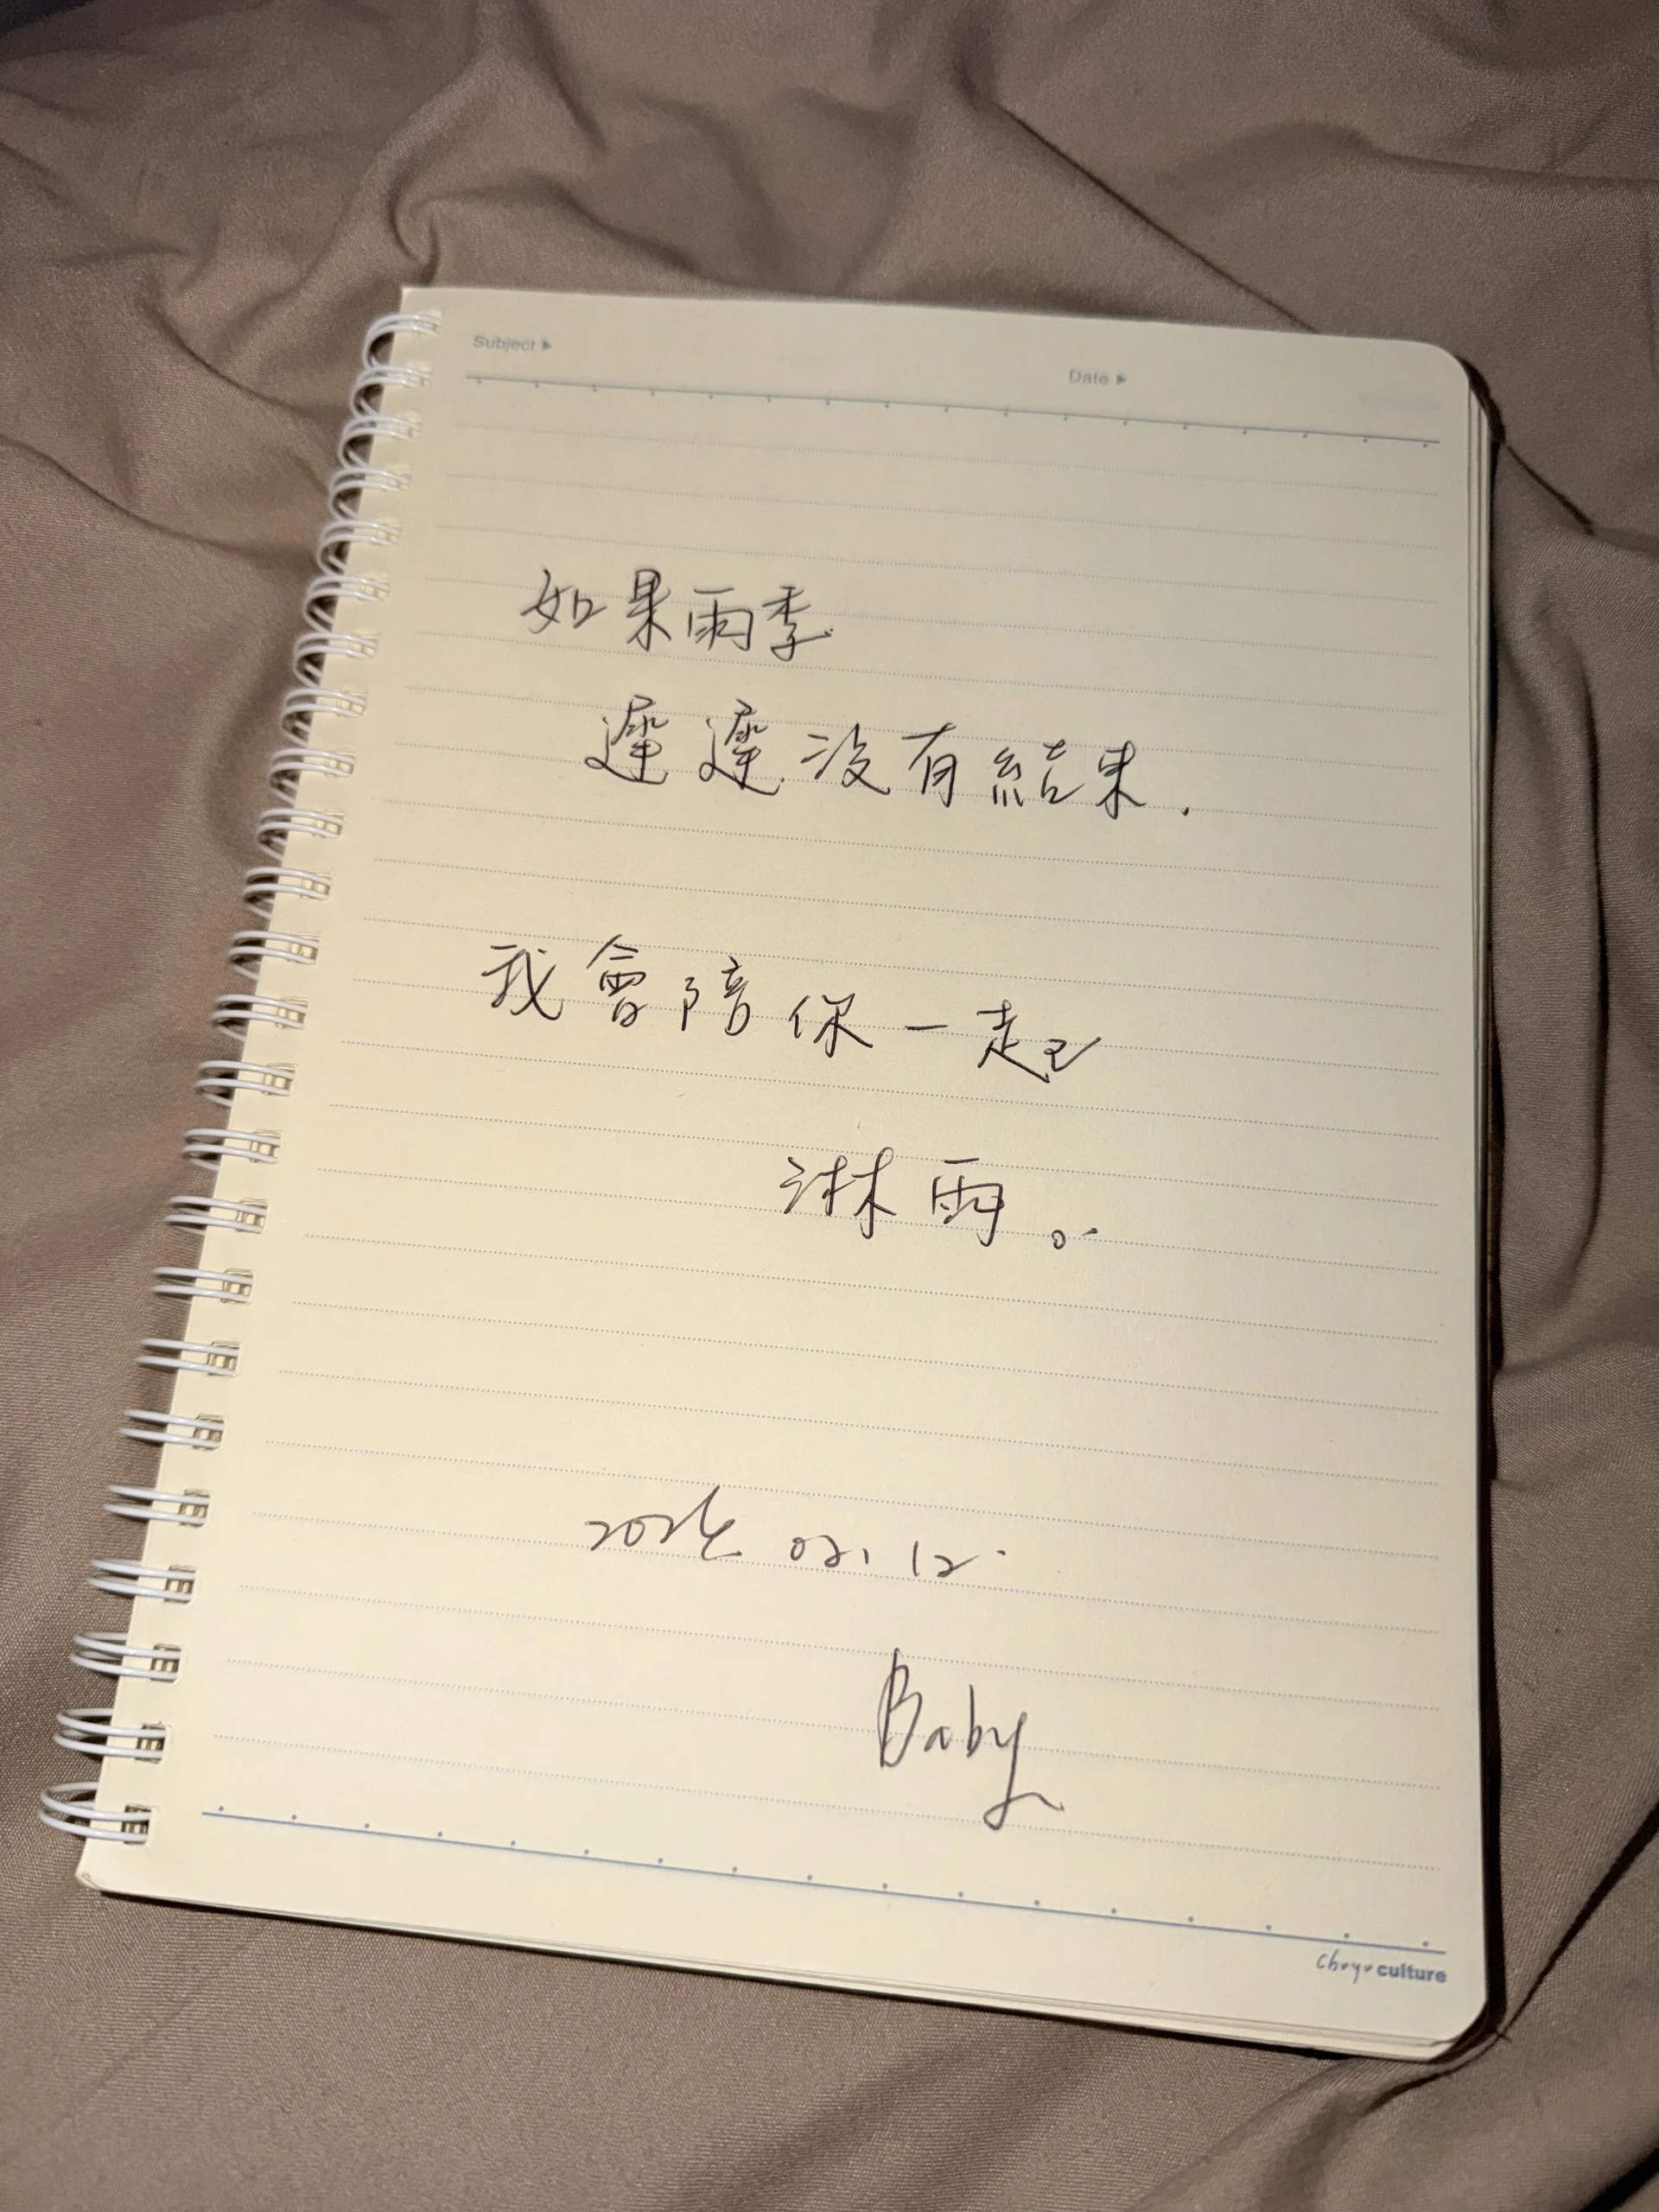 Subject ▶ Date ▶
如果雨季
遲遲沒有結果.
我會陪你一起
淋雨。
02.12.
Baby
chuyu culture